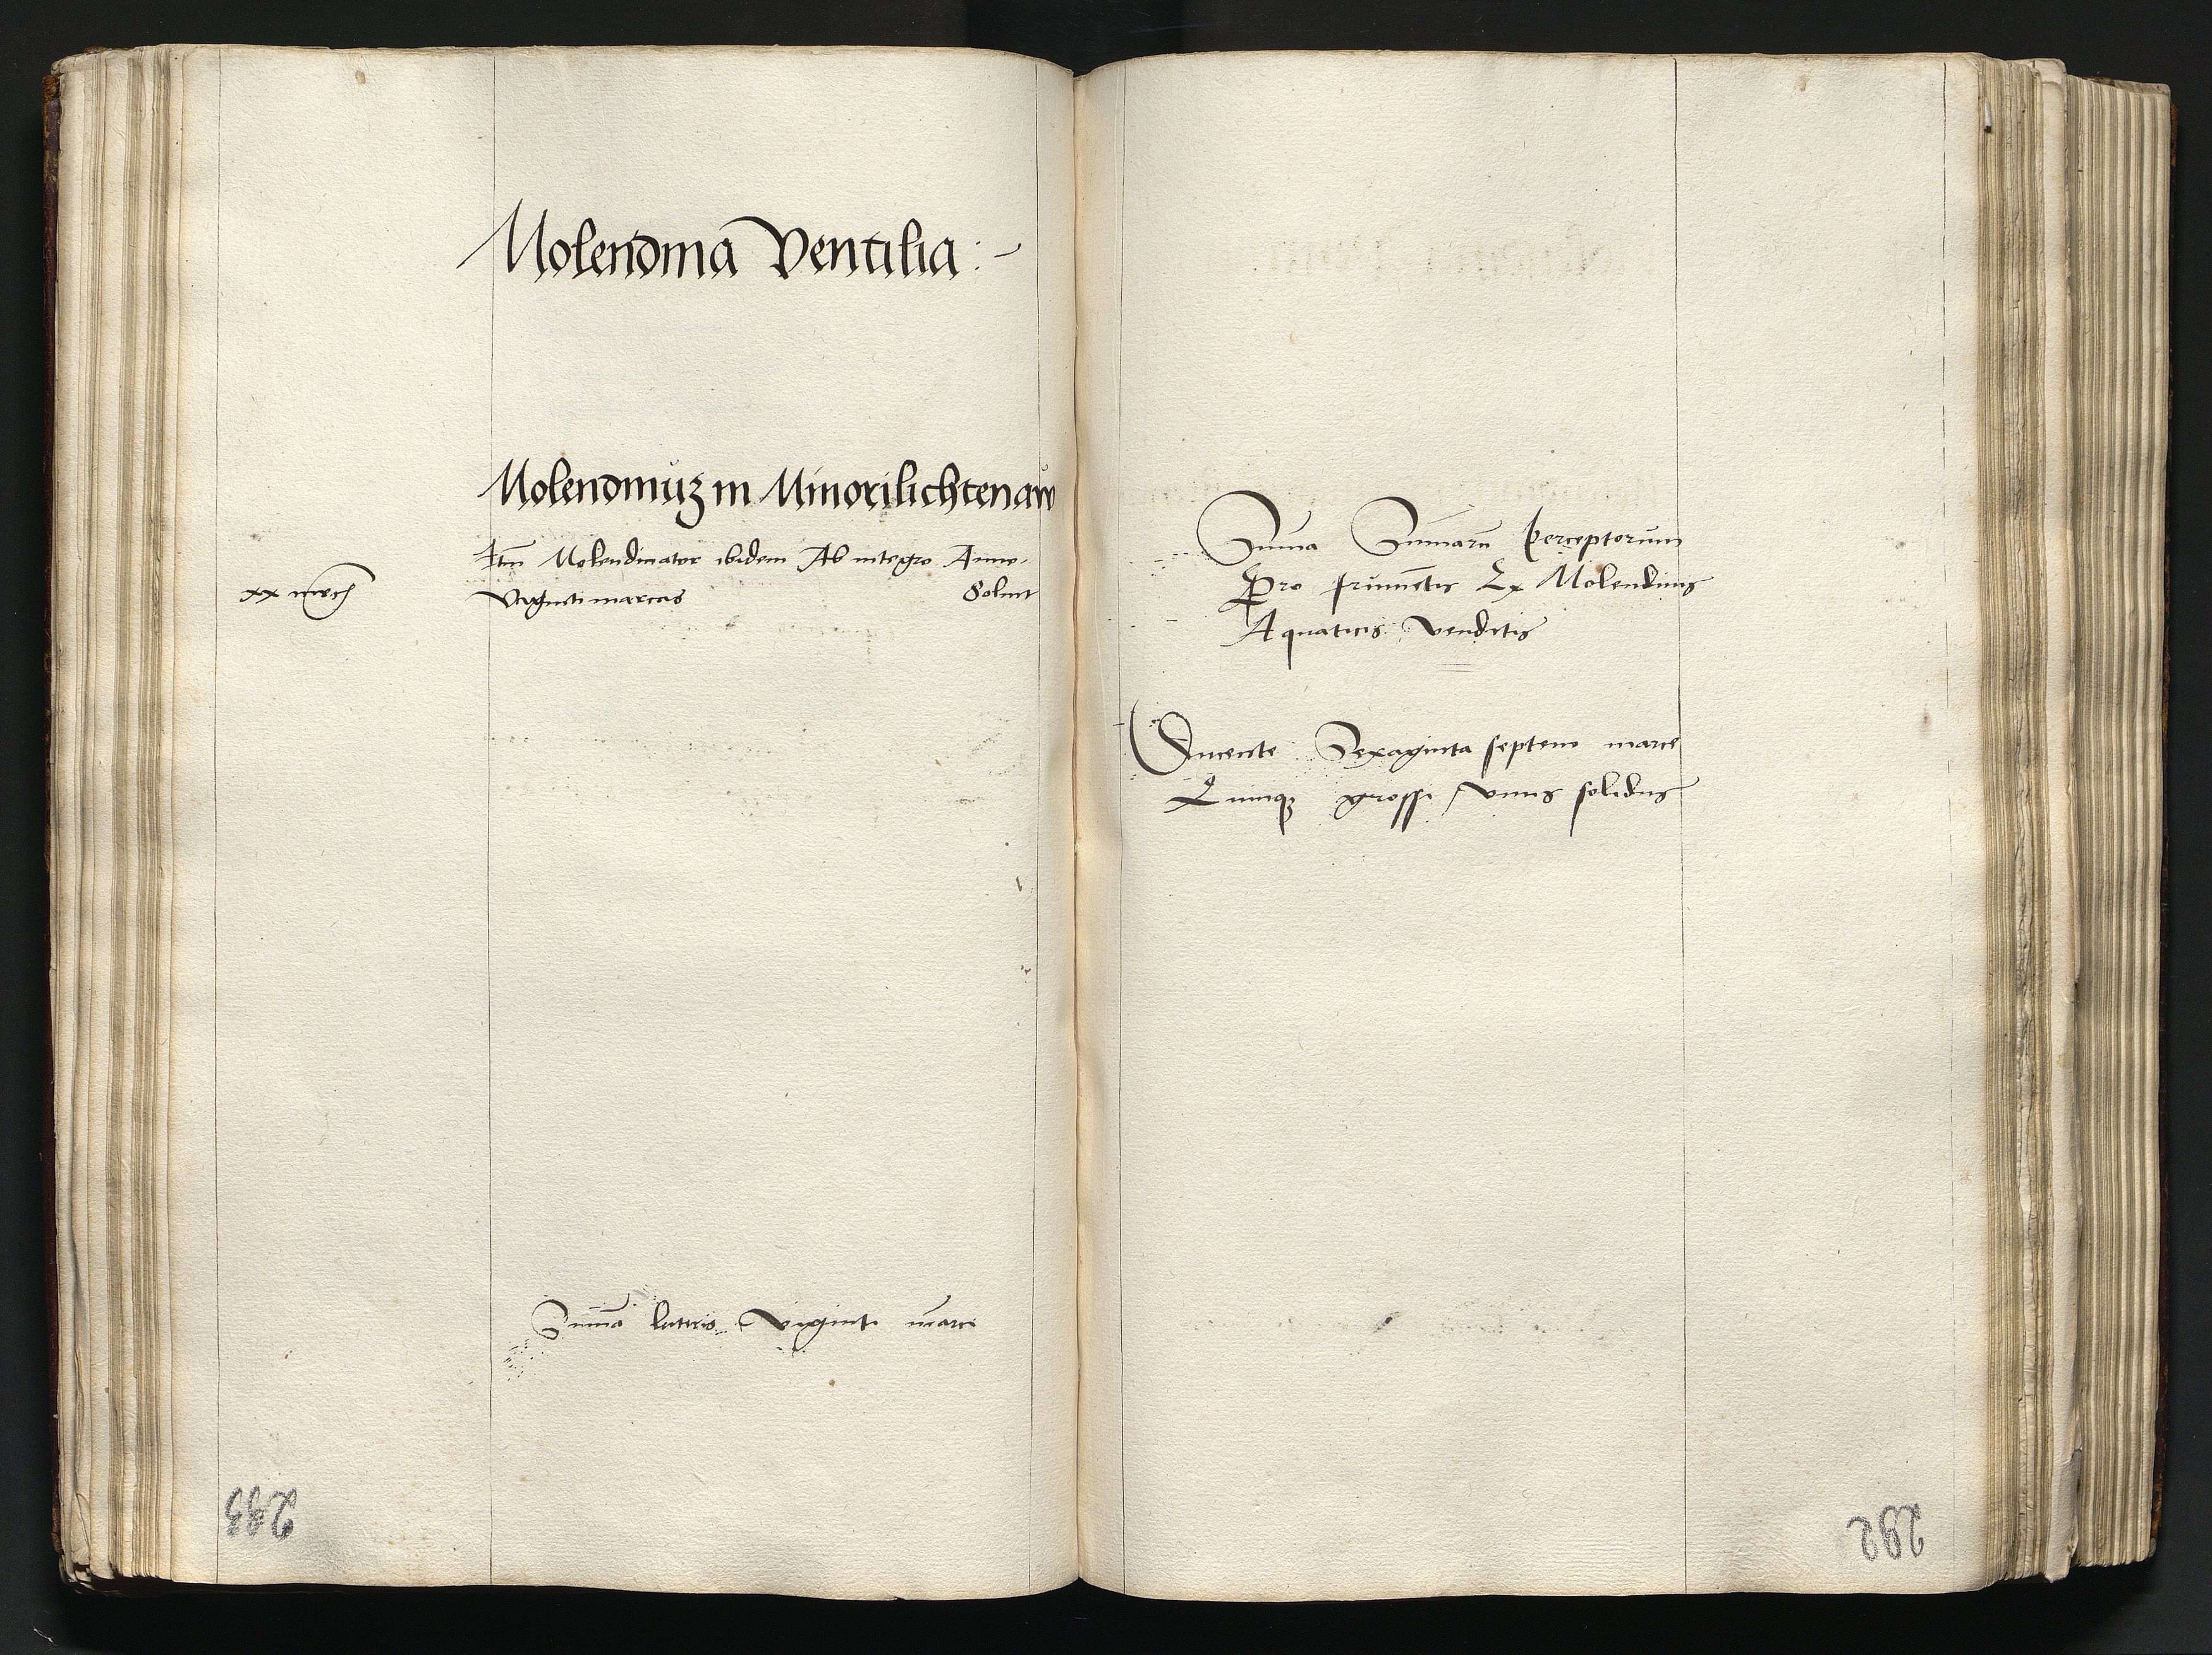 Molendina Ventilia :-
Molendinuʒ in Minorilichtenaw
Itm̄ Molendinator ibidem Ab integro Anno
Soluit
xx mrch
Viginti marcas
Sum̄a lateris Viginti marce
Sum̄a Sum̄arū perceptorum
Pro frumētis Ex Molendinis
Aquaticis venditis
Ducente Sexaginta septem marce
Quinqʒ grossi / vnus solidus
293
292